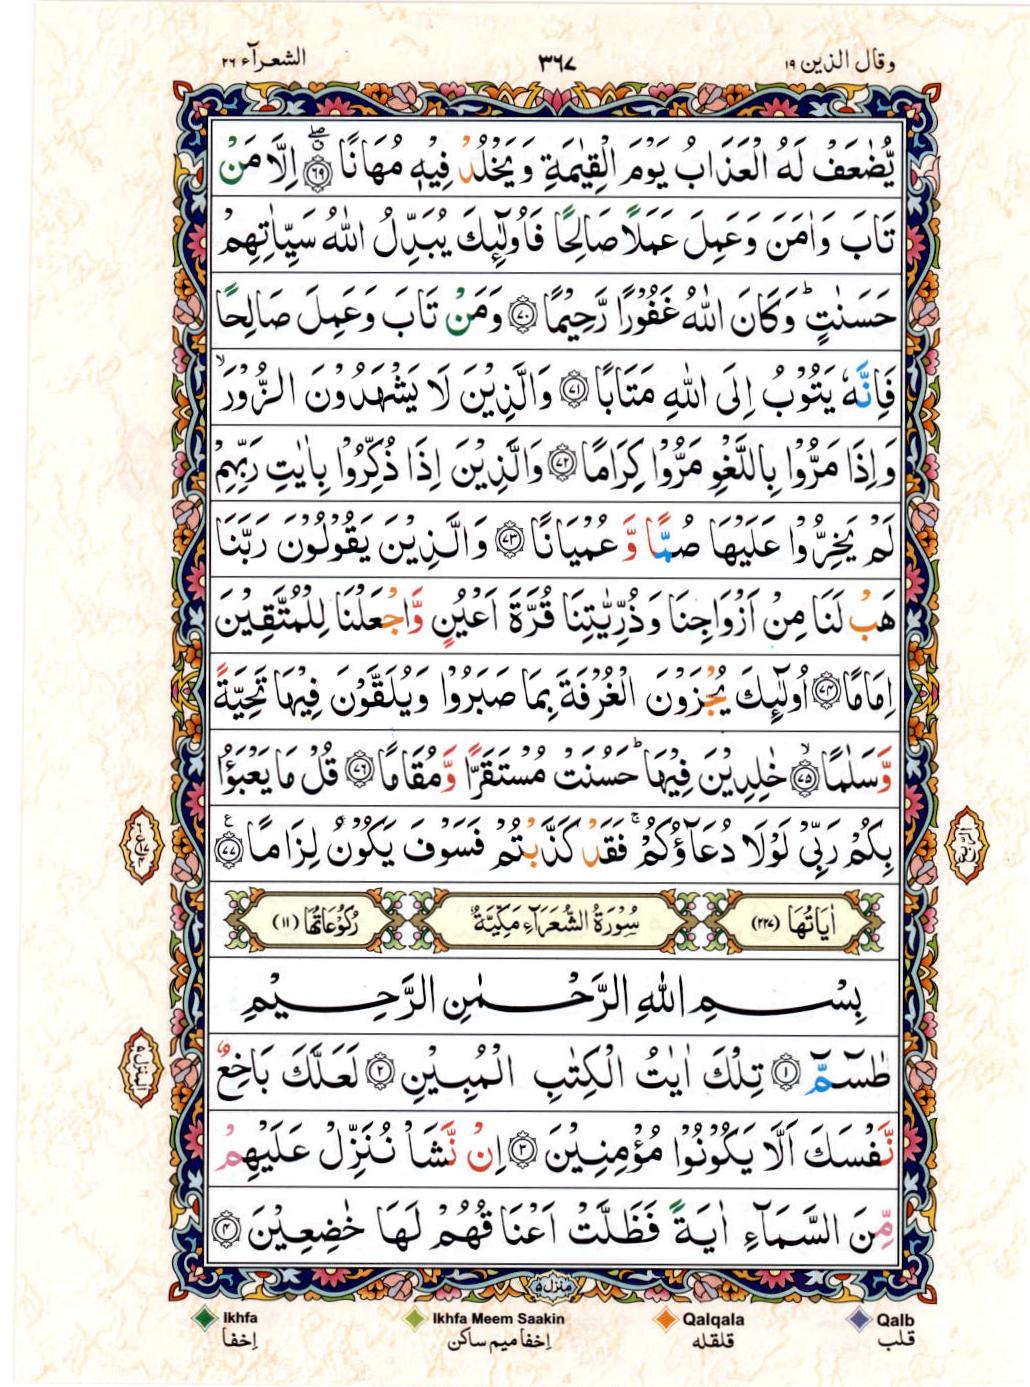 وقال الذین ١٩
٣٦٧
الشعرآء ٢٦
یُّضٰعَفْ لَهُ الْعَذَابُ یَوْمَ الْقِیٰمَةِ وَیَخْلُدْ فِیْهٖ مُهَانًا ﴿٦٩﴾ اِلَّا مَنْ
تَابَ وَاٰمَنَ وَعَمِلَ عَمَلًا صَالِحًا فَاُولٰٓئِكَ یُبَدِّلُ اللّٰهُ سَیِّاٰتِهِمْ
حَسَنٰتٍ ؕ وَكَانَ اللّٰهُ غَفُوْرًا رَّحِیْمًا ﴿٧٠﴾ وَمَنْ تَابَ وَعَمِلَ صَالِحًا
فَاِنَّهٗ یَتُوْبُ اِلَی اللّٰهِ مَتَابًا ﴿٧١﴾ وَالَّذِیْنَ لَا یَشْهَدُوْنَ الزُّوْرَ ۙ
وَاِذَا مَرُّوْا بِاللَّغْوِ مَرُّوْا كِرَامًا ﴿٧٢﴾ وَالَّذِیْنَ اِذَا ذُكِّرُوْا بِاٰیٰتِ رَبِّهِمْ
لَمْ یَخِرُّوْا عَلَیْهَا صُمًّا وَّ عُمْیَانًا ﴿٧٣﴾ وَالَّذِیْنَ یَقُوْلُوْنَ رَبَّنَا
هَبْ لَنَا مِنْ اَزْوَاجِنَا وَذُرِّیّٰتِنَا قُرَّةَ اَعْیُنٍ وَّاجْعَلْنَا لِلْمُتَّقِیْنَ
اِمَامًا ﴿٧٤﴾ اُولٰٓئِكَ یُجْزَوْنَ الْغُرْفَةَ بِمَا صَبَرُوْا وَیُلَقَّوْنَ فِیْهَا تَحِیَّةً
وَّسَلٰمًا ﴿٧٥﴾ ۙ خٰلِدِیْنَ فِیْهَا ؕ حَسُنَتْ مُسْتَقَرًّا وَّمُقَامًا ﴿٧٦﴾ قُلْ مَا یَعْبَؤُا
بِكُمْ رَبِّیْ لَوْلَا دُعَآؤُكُمْ ۚ فَقَدْ كَذَّبْتُمْ فَسَوْفَ یَكُوْنُ لِزَامًا ﴿٧٧﴾
اٰیَاتُهَا (٢٢٧)
سُوْرَةُ الشُّعَرَآءِ مَكِّیَّةٌ
رُكُوْعَاتُهَا (١١)
بِسْمِ اللّٰهِ الرَّحْمٰنِ الرَّحِیْمِ
طٰسٓمّٓ ﴿١﴾ تِلْكَ اٰیٰتُ الْكِتٰبِ الْمُبِیْنِ ﴿٢﴾ لَعَلَّكَ بَاخِعٌ
نَّفْسَكَ اَلَّا یَكُوْنُوْا مُؤْمِنِیْنَ ﴿٣﴾ اِنْ نَّشَاْ نُنَزِّلْ عَلَیْهِمْ
مِّنَ السَّمَآءِ اٰیَةً فَظَلَّتْ اَعْنَاقُهُمْ لَهَا خٰضِعِیْنَ ﴿٤﴾
المنزل ٥
منزل ٥
Ikhfa
Ikhfa Meem Saakin
Qalqala
Qalb
إخفا
إخفا میم ساکن
قلقله
قلب